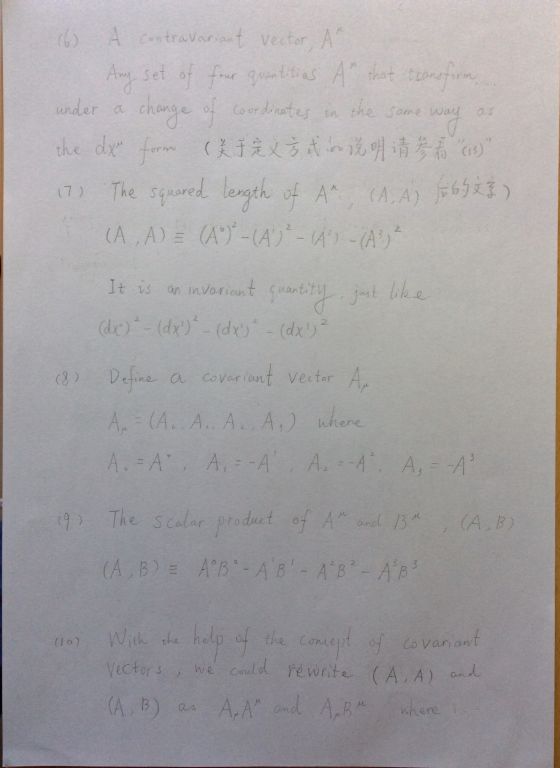 (6) A contravariant vector, Aᵘ
Any set of four quantities Aᵘ that transform
under a change of coordinates in the same way as
the dxᵘ form (关于定义方式的说明请参看"(15)"
(7) The squared length of Aᵘ, (A, A) 后的文字)
(A, A) ≡ (A⁰)² - (A¹)² - (A²)² - (A³)²
It is an invariant quantity, just like
(dx⁰)² - (dx¹)² - (dx²)² - (dx³)²
(8) Define a covariant vector Aᵤ
Aᵤ = (A₀, A₁, A₂, A₃) where
A₀ = A⁰, A₁ = -A¹, A₂ = -A², A₃ = -A³
(9) The scalar product of Aᵘ and Bᵘ, (A, B)
(A, B) ≡ A⁰B⁰ - A¹B¹ - A²B² - A³B³
(10) With the help of the concept of covariant
vectors, we could rewrite (A, A) and
(A, B) as AᵤAᵘ and AᵤBᵘ where